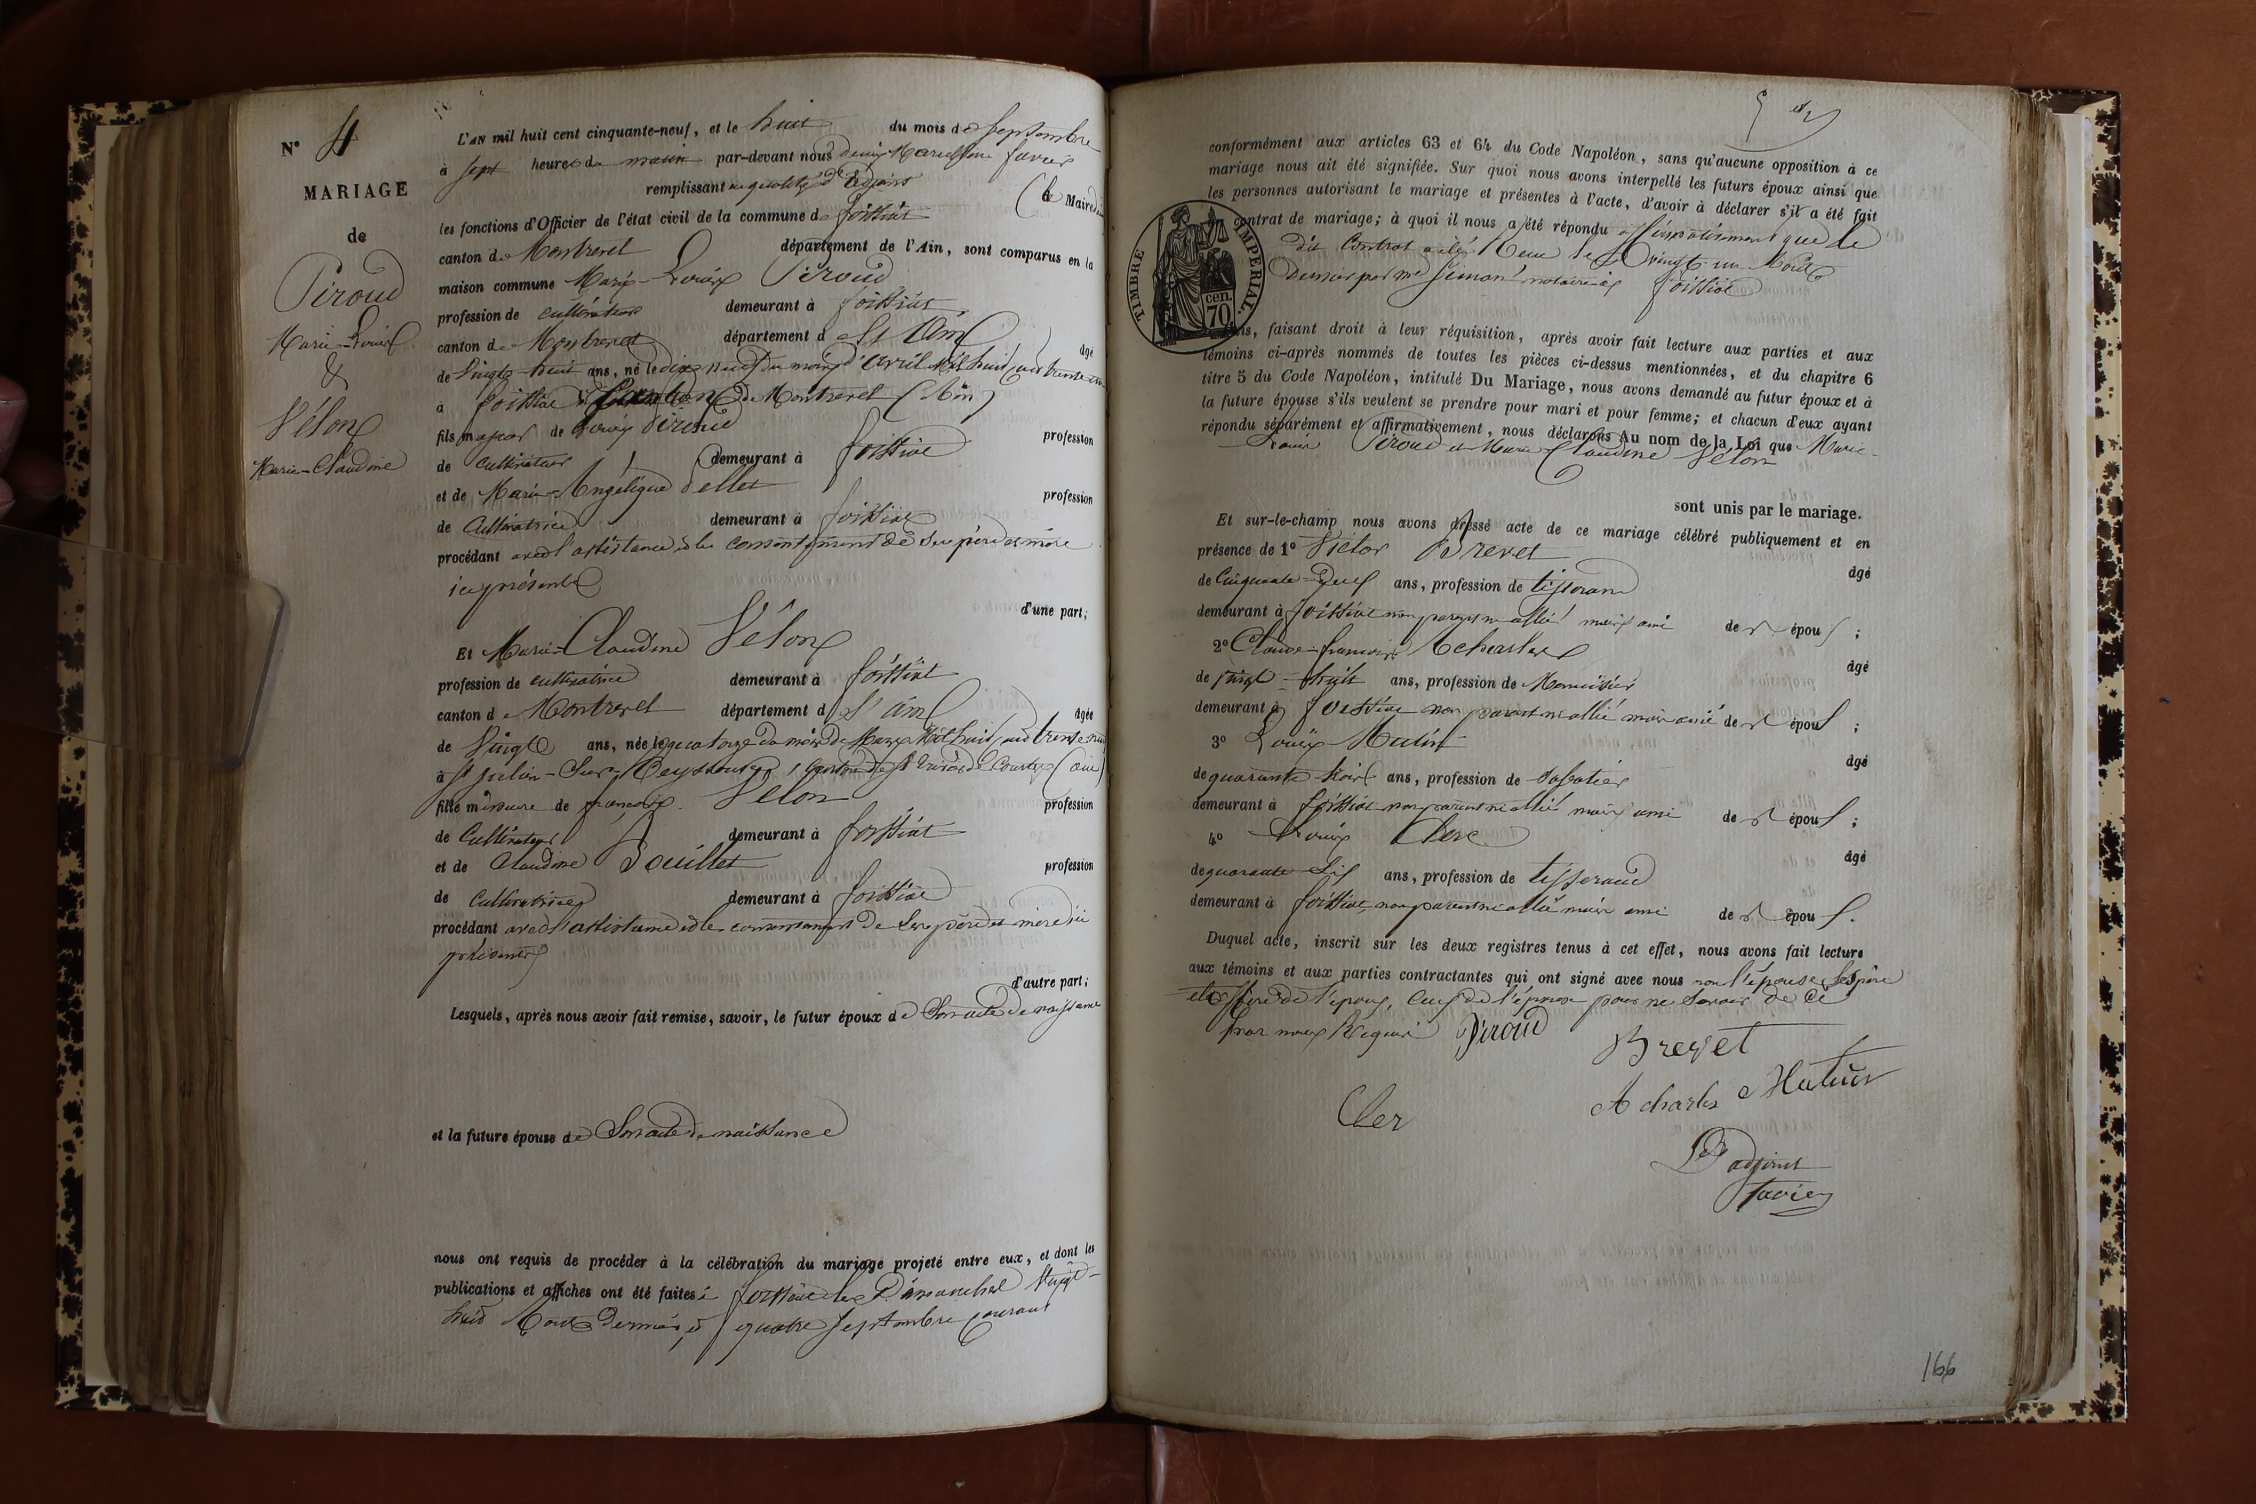 N° 4
MARIAGE
de
Piroud
Marie-Louis
&
Vélon
Marie-Claudine
L'AN mil huit cent cinquante-neuf, et le huit du mois de Septembre
à sept heures du matin par-devant nous favier
remplissant en qualité d'adjoint (de Maire
les fonctions d'Officier de l'état civil de la commune de foissiat
canton de Montrevel département de l'Ain, sont comparus en la
maison commune Marie-Louis Piroud
profession de cultivateur demeurant à foissiat
canton de Montrevel département de l'Ain âgé
de vingt-huit ans, né le dix neuf du mois d'avril mil huit cent trente un
à foissiat canton de Montrevel (Ain)
fils majeur de Louis Piroud profession
de cultivateur demeurant à foissiat
et de Marie-Angélique Pellet profession
de cultivatrice demeurant à foissiat
procédant avec l'assistance et le consentement de ses père et mère
ici présents
d'une part;
Et Marie-Claudine Vélon
profession de cultivatrice demeurant à foissiat
canton de Montrevel département de l'ain âgée
de vingt ans, née le quatorze du mois de Mars mil huit cent trente neuf
à St julien-Sur-Reyssouze, canton de St Trivier de Courtes (ain)
fille mineure de françois Vélon profession
de cultivateur demeurant à foissiat
et de Claudine Pouillet profession
de cultivatrice demeurant à foissiat
procédant avec l'assistance et le consentement de ses père et mère ici
présents
d'autre part;
Lesquels, après nous avoir fait remise, savoir, le futur époux de Son acte de naissance
et la future épouse de Son acte de naissance
nous ont requis de procéder à la célébration du mariage projeté entre eux, et dont les
publications et affiches ont été faites à foissiat les Dimanches vingt-
huit Août dernier et quatre septembre courant
conformément aux articles 63 et 64 du Code Napoléon, sans qu'aucune opposition à ce
mariage nous ait été signifiée. Sur quoi nous avons interpellé les futurs époux ainsi que
les personnes autorisant le mariage et présentes à l'acte, d'avoir à déclarer s'il a été fait
contrat de mariage; à quoi il nous a été répondu affirmativement que le
dit Contrat a été Reçu le vingt un Août
dernier par me Simon notaire à foissiat
TIMBRE IMPÉRIAL.
70 cen.
faisant droit à leur réquisition, après avoir fait lecture aux parties et aux
témoins ci-après nommés de toutes les pièces ci-dessus mentionnées, et du chapitre 6
titre 5 du Code Napoléon, intitulé Du Mariage, nous avons demandé au futur époux et à
la future épouse s'ils veulent se prendre pour mari et pour femme; et chacun d'eux ayant
répondu séparément et affirmativement, nous déclarons Au nom de la Loi que Marie-
Louis Piroud et Marie Claudine Vélon
sont unis par le mariage.
Et sur-le-champ nous avons dressé acte de ce mariage célébré publiquement et en
présence de 1° Victor Brevet âgé
de Cinquante-Deux ans, profession de tisserand
demeurant à foissiat non parent ni allié mais ami des époux;
2° Claude-françois Acharles âgé
de vingt-huit ans, profession de Menuisier
demeurant à foissiat non parent ni allié mais ami des époux;
3° Louis âgé
de quarante trois ans, profession de Sabotier
demeurant à foissiat non parent ni allié mais ami des époux;
4° Louis Clerc âgé
de quarante Six ans, profession de tisserand
demeurant à foissiat non parent ni allié mais ami des époux.
Duquel acte, inscrit sur les deux registres tenus à cet effet, nous avons fait lecture
aux témoins et aux parties contractantes qui ont signé avec nous non l'épouse, les père
et mère de l'époux, ceux de l'épouse pour ne savoir de ce
par nous Requis Piroud
Brevet
Acharles
Cler
L'adjoint
favier
166